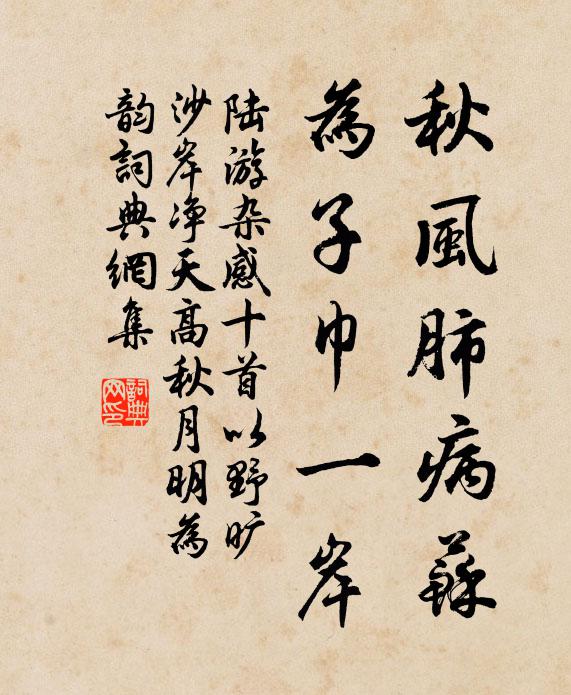 秋風肺病蘇
為子巾一岸
陆游杂感十首以野旷
沙岸净天高秋月明為
韵詞典網集
詞典
网印